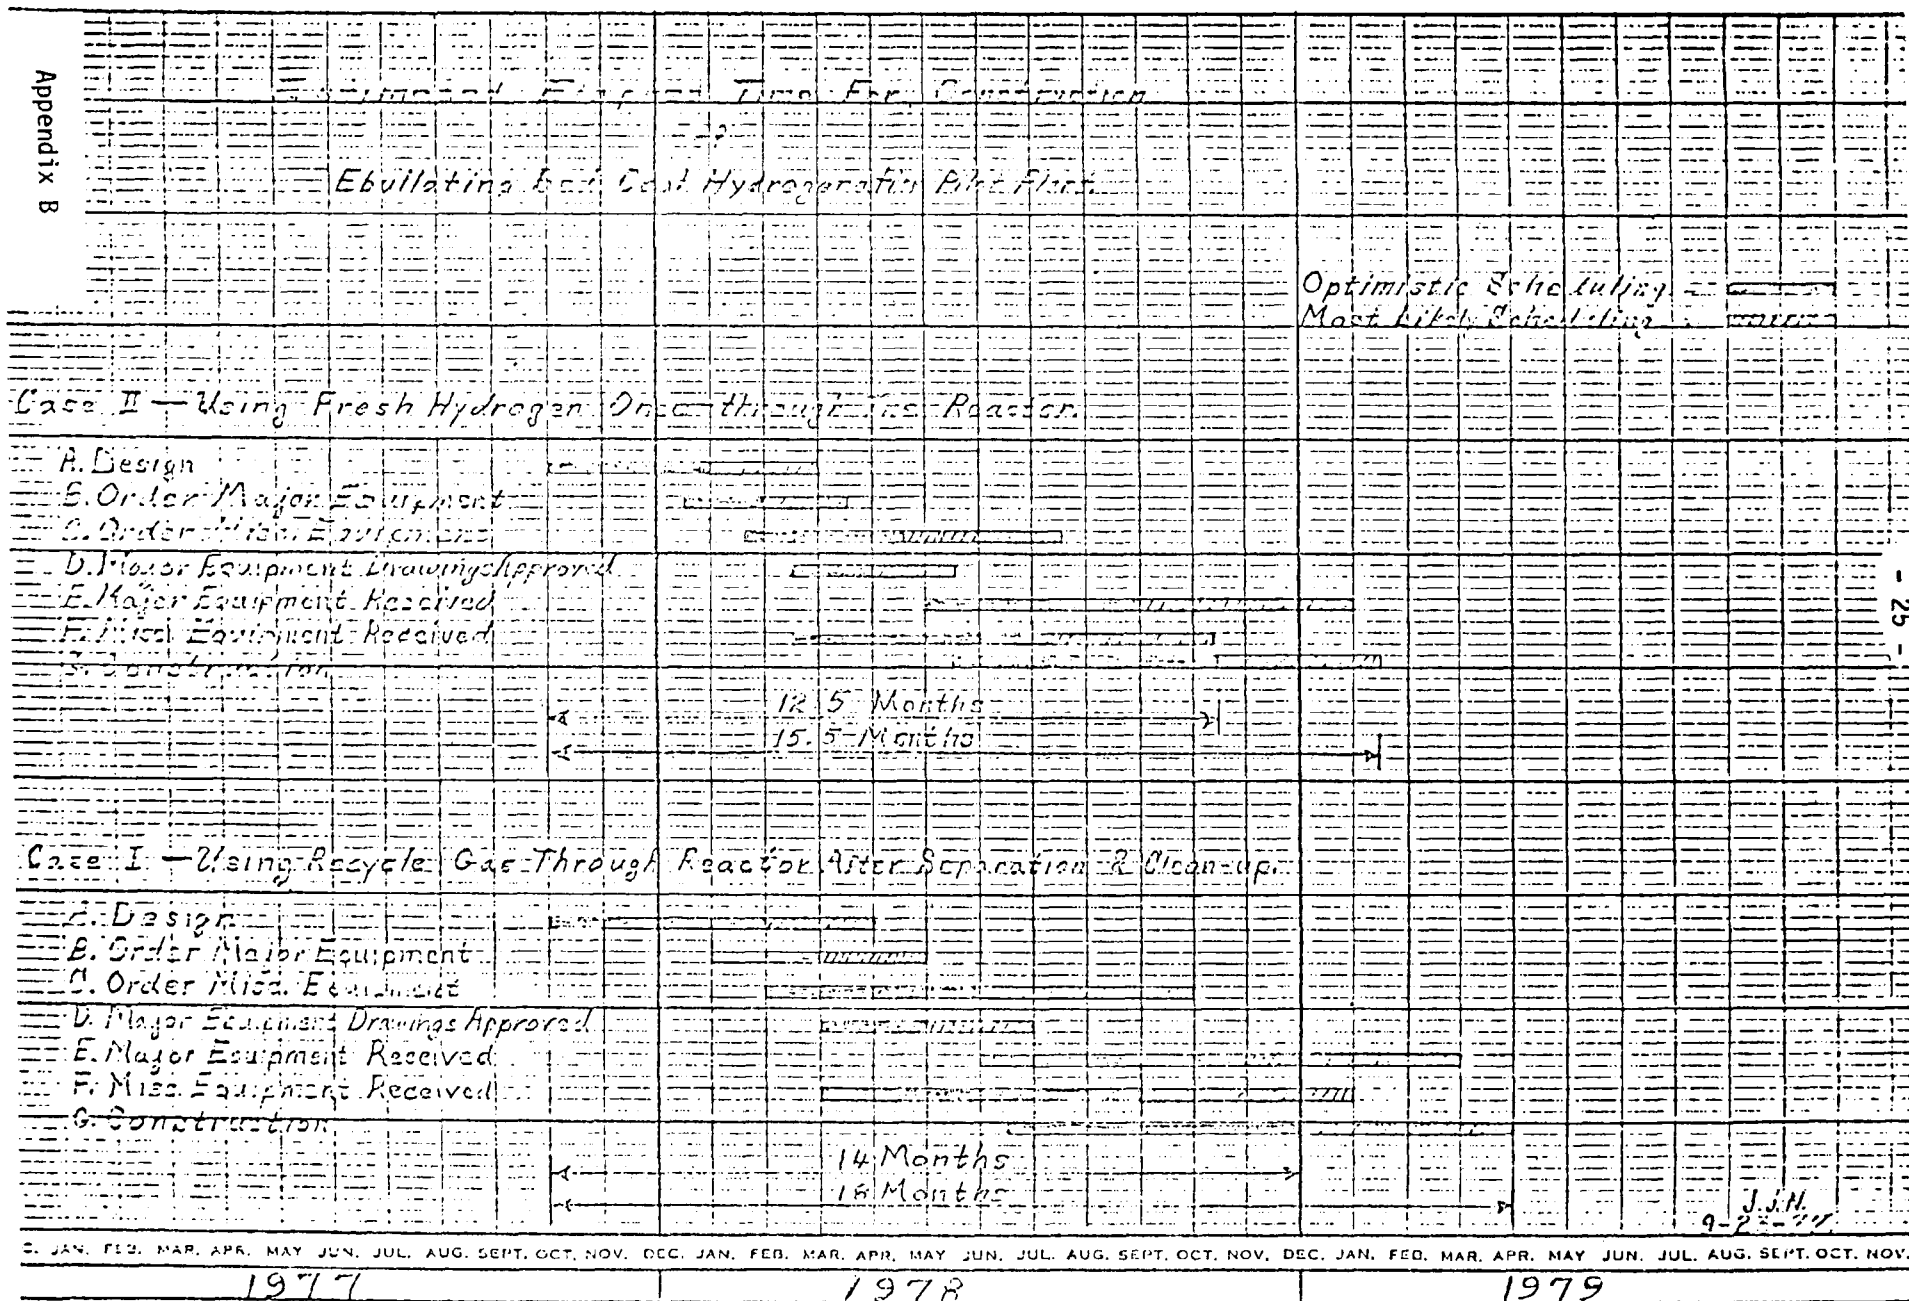 Appendix B
Estimated Elapsed Time For Construction
Ebullating Bed Coal Hydrogenation Pilot Plant
Optimistic Scheduling
Most Likely Scheduling
Case II — Using Fresh Hydrogen Once-through The Reactor
A. Design
B. Order Major Equipment
C. Order Misc. Equipment
D. Major Equipment Drawings Approved
E. Major Equipment Received
F. Misc. Equipment Received
G. Construction
12.5 Months
15.5 Months
- 25 -
Case I — Using Recycle Gas Through Reactor After Separation & Clean-up.
A. Design
B. Order Major Equipment
C. Order Misc. Equipment
D. Major Equipment Drawings Approved
E. Major Equipment Received
F. Misc. Equipment Received
G. Construction
14 Months
18 Months
J.J.H.
C. JAN. FEB. MAR. APR. MAY JUN. JUL. AUG. SEPT. OCT. NOV. DEC. JAN. FEB. MAR. APR. MAY JUN. JUL. AUG. SEPT. OCT. NOV. DEC. JAN. FEB. MAR. APR. MAY JUN. JUL. AUG. SEPT. OCT. NOV.
1977 1978 1979